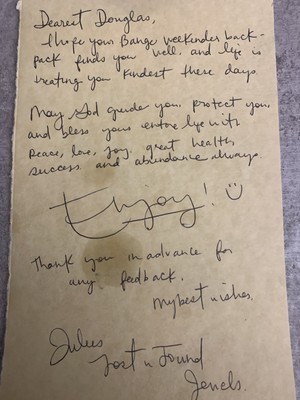 Dearest Douglas,
I hope your Bange weekender back-
pack finds you well. and life is
treating you kindest these days.
May God guide you, protect you,
and bless your entire life with
peace, love, joy, great health,
success and abundance always.
Enjoy! ☺
Thank you in advance for
any feedback.
My best wishes,
Lost n Found
Jewels.